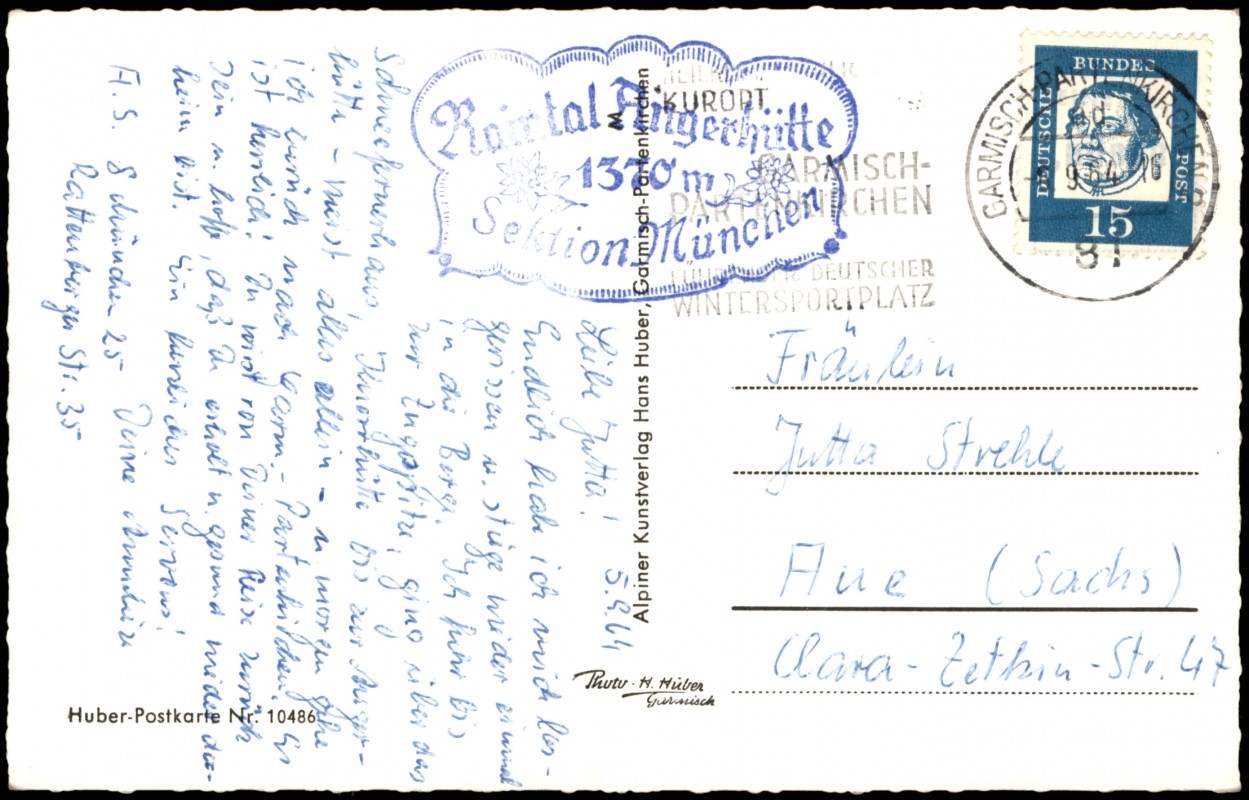 Raintal Angerhütte
1370 m
Sektion München
KURORT
GARMISCH-
PARTENKIRCHEN
FÜHRENDER DEUTSCHER
WINTERSPORTPLATZ
GARMISCH-PARTENKIRCHEN
9.64
81
DEUTSCHE
BUNDES
POST
15
Liebe Jutta! 5.9.64
Endlich habe ich mich los-
gerissen u. stieg wieder einmal
in die Berge. Ich fuhr bis
zur Zugspitze, ging über das
Schneefernerhaus, Knorrhütte bis zur Anger-
hütte – meist alles allein – u. morgen gehe
ich zurück nach Garm.-Partenkirchen. Es
ist herrlich! Du wirst von Deiner Reise zurück
sein u. hoffe, daß Du erholt u. gesund wieder da-
heim bist. Ein herzliches Servus!
Deine Anneliese
A. S. 8 München 25
Rattenberger Str. 35
Alpiner Kunstverlag Hans Huber, Garmisch-Partenkirchen
M
Photo - H. Huber
Garmisch
Huber-Postkarte Nr. 10486
Fräulein
Jutta Strehle
Aue (Sachs)
Clara-Zetkin-Str. 47